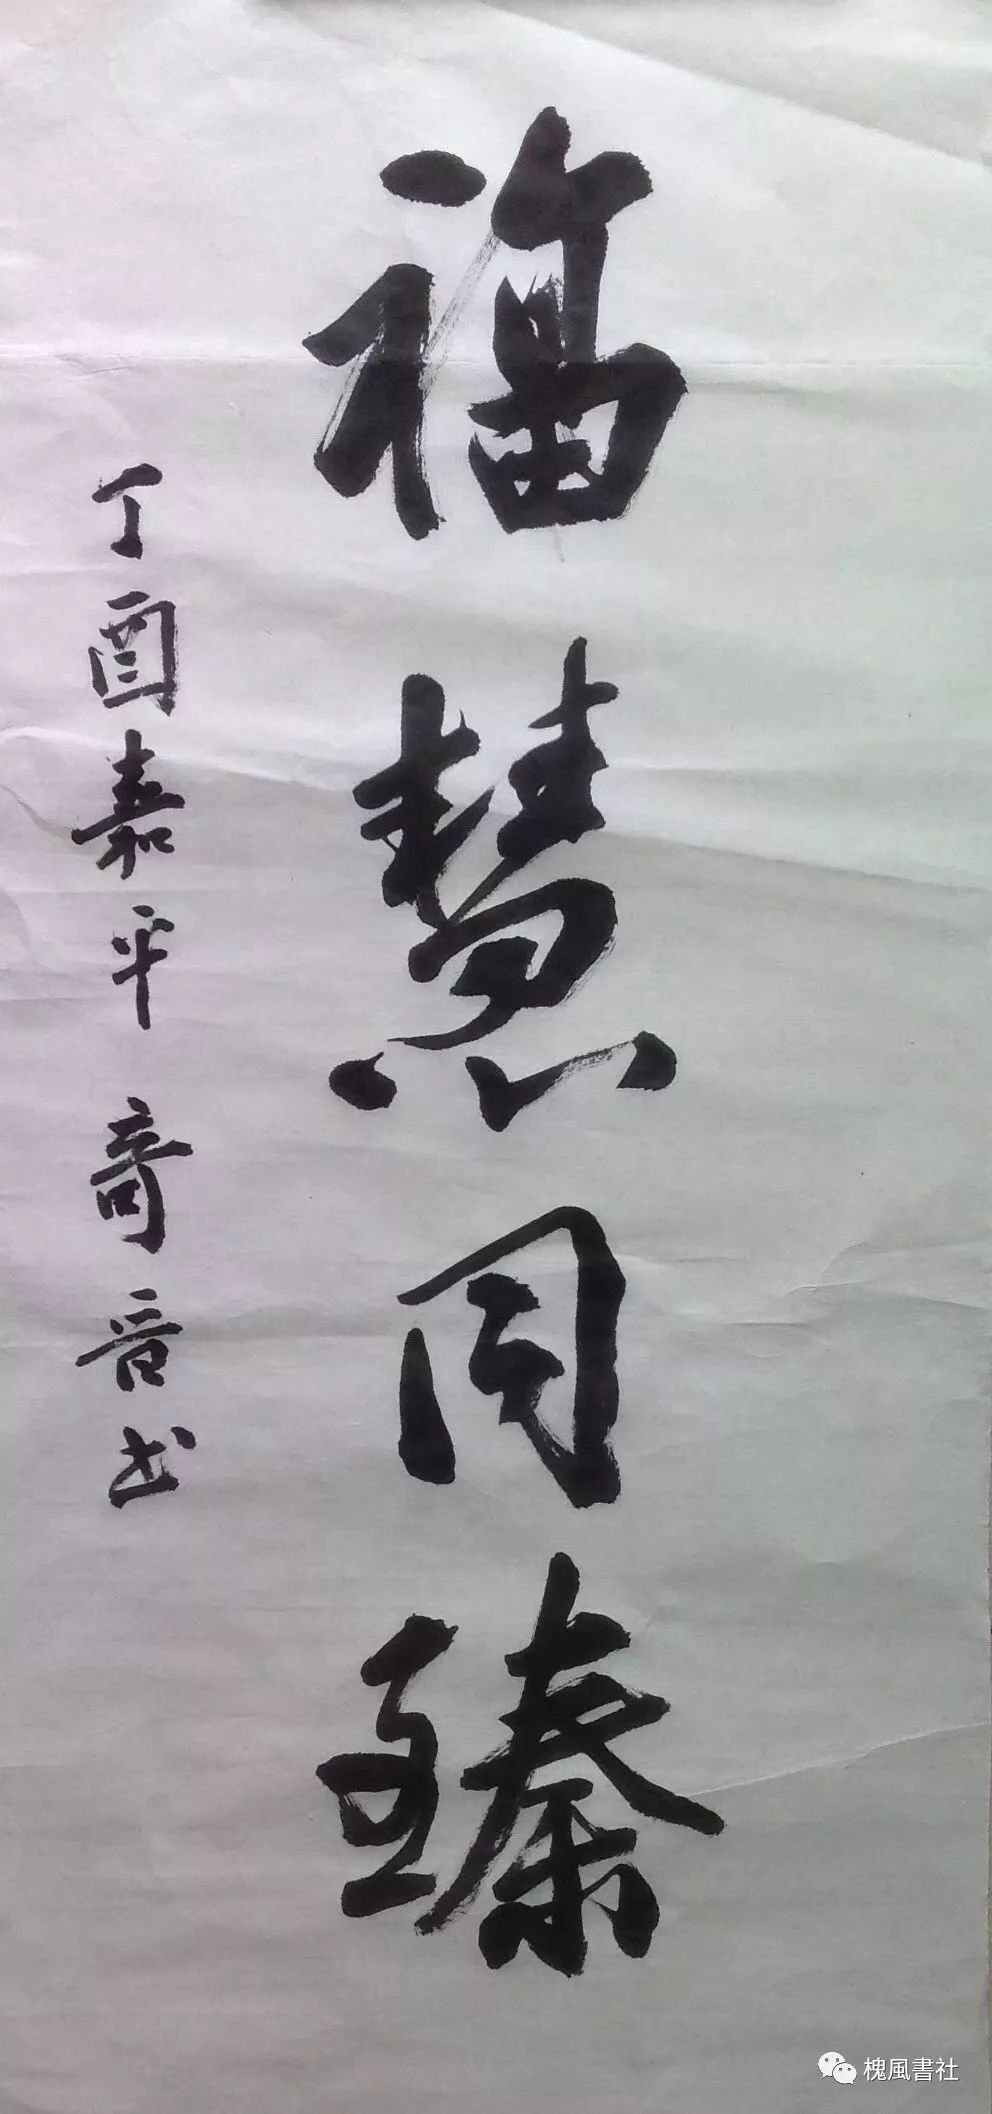 福慧同臻
丁酉嘉平奇音书
槐風書社